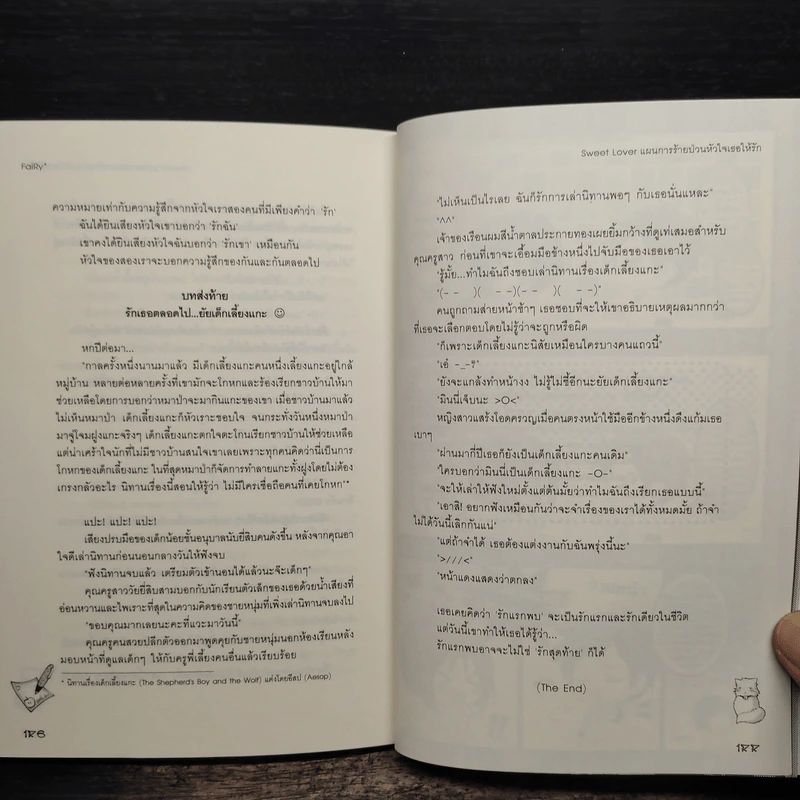 FaiRy*
ความหมายเท่ากับความรู้สึกจากหัวใจเราสองคนที่มีเพียงคำว่า 'รัก'
ฉันได้ยินเสียงหัวใจเขาบอกว่า 'รักฉัน'
เขาคงได้ยินเสียงหัวใจฉันบอกว่า 'รักเขา' เหมือนกัน
หัวใจของสองเราจะบอกความรู้สึกของกันและกันตลอดไป
บทส่งท้าย
รักเธอตลอดไป...ยัยเด็กเลี้ยงแกะ ☺
หกปีต่อมา...
"กาลครั้งหนึ่งนานมาแล้ว มีเด็กเลี้ยงแกะคนหนึ่งเลี้ยงแกะอยู่ใกล้
หมู่บ้าน หลายต่อหลายครั้งที่เขามักจะโกหกและร้องเรียกชาวบ้านให้มา
ช่วยเหลือโดยการบอกว่าหมาป่าจะมากินแกะของเขา เมื่อชาวบ้านมาแล้ว
ไม่เห็นหมาป่า เด็กเลี้ยงแกะก็หัวเราะชอบใจ จนกระทั่งวันหนึ่งหมาป่า
มาจู่โจมฝูงแกะจริงๆ เด็กเลี้ยงแกะตกใจตะโกนเรียกชาวบ้านให้ช่วยเหลือ
แต่น่าเศร้าใจนักที่ไม่มีชาวบ้านสนใจเขาเลยเพราะทุกคนคิดว่านี่เป็นการ
โกหกของเด็กเลี้ยงแกะ ในที่สุดหมาป่าก็จัดการทำลายแกะทั้งฝูงโดยไม่ต้อง
เกรงกลัวอะไร นิทานเรื่องนี้สอนให้รู้ว่า ไม่มีใครเชื่อถือคนที่เคยโกหก"*
แปะ! แปะ! แปะ!
เสียงปรบมือของเด็กน้อยชั้นอนุบาลนับยี่สิบคนดังขึ้น หลังจากคุณอา
ใจดีเล่านิทานก่อนนอนกลางวันให้ฟังจบ
"ฟังนิทานจบแล้ว เตรียมตัวเข้านอนได้แล้วนะจ๊ะเด็กๆ"
คุณครูสาววัยยี่สิบสามบอกกับนักเรียนตัวเล็กของเธอด้วยน้ำเสียงที่
อ่อนหวานและไพเราะที่สุดในความคิดของชายหนุ่มที่เพิ่งเล่านิทานจบลงไป
"ขอบคุณมากเลยนะคะที่แวะมาวันนี้"
คุณครูคนสวยปลีกตัวออกมาพูดคุยกับชายหนุ่มนอกห้องเรียนหลัง
มอบหน้าที่ดูแลเด็กๆ ให้กับครูพี่เลี้ยงคนอื่นแล้วเรียบร้อย
* นิทานเรื่องเด็กเลี้ยงแกะ (The Shepherd's Boy and the Wolf) แต่งโดยอีสป (Aesop)
186
Sweet Lover แผนการร้ายป่วนหัวใจเธอให้รัก
"ไม่เห็นเป็นไรเลย ฉันก็รักการเล่านิทานพอๆ กับเธอนั่นแหละ"
"^^"
เจ้าของเรือนผมสีน้ำตาลประกายทองเผยยิ้มกว้างที่ดูเท่เสมอสำหรับ
คุณครูสาว ก่อนที่เขาจะเอื้อมมือข้างหนึ่งไปจับมือของเธอเอาไว้
"รู้มั้ย...ทำไมฉันถึงชอบเล่านิทานเรื่องเด็กเลี้ยงแกะ"
"(- - )( - -)(- - )( - -)"
คนถูกถามส่ายหน้าช้าๆ เธอชอบที่จะให้เขาอธิบายเหตุผลมากกว่า
ที่เธอจะเลือกตอบโดยไม่รู้ว่าจะถูกหรือผิด
"ก็เพราะเด็กเลี้ยงแกะนิสัยเหมือนใครบางคนแถวนี้"
"เอ๋ -_-?"
"ยังจะแกล้งทำหน้างง ไม่รู้ไม่ชี้อีกนะยัยเด็กเลี้ยงแกะ"
"มินนี่เจ็บนะ >O<"
หญิงสาวแสร้งโอดครวญเมื่อคนตรงหน้าใช้มืออีกข้างหนึ่งดึงแก้มเธอ
เบาๆ
"ผ่านมากี่ปีเธอก็ยังเป็นเด็กเลี้ยงแกะคนเดิม"
"ใครบอกว่ามินนี่เป็นเด็กเลี้ยงแกะ -O-"
"จะให้เล่าให้ฟังใหม่ตั้งแต่ต้นมั้ยว่าทำไมฉันถึงเรียกเธอแบบนี้"
"เอาสิ! อยากฟังเหมือนกันว่าจะจำเรื่องของเราได้ทั้งหมดมั้ย ถ้าจำ
ไม่ได้วันนี้เลิกกันแน่"
"แต่ถ้าจำได้ เธอต้องแต่งงานกับฉันพรุ่งนี้นะ"
">///<"
"หน้าแดงแสดงว่าตกลง"
เธอเคยคิดว่า 'รักแรกพบ' จะเป็นรักแรกและรักเดียวในชีวิต
แต่วันนี้เขาทำให้เธอได้รู้ว่า...
รักแรกพบอาจจะไม่ใช่ 'รักสุดท้าย' ก็ได้
(The End)